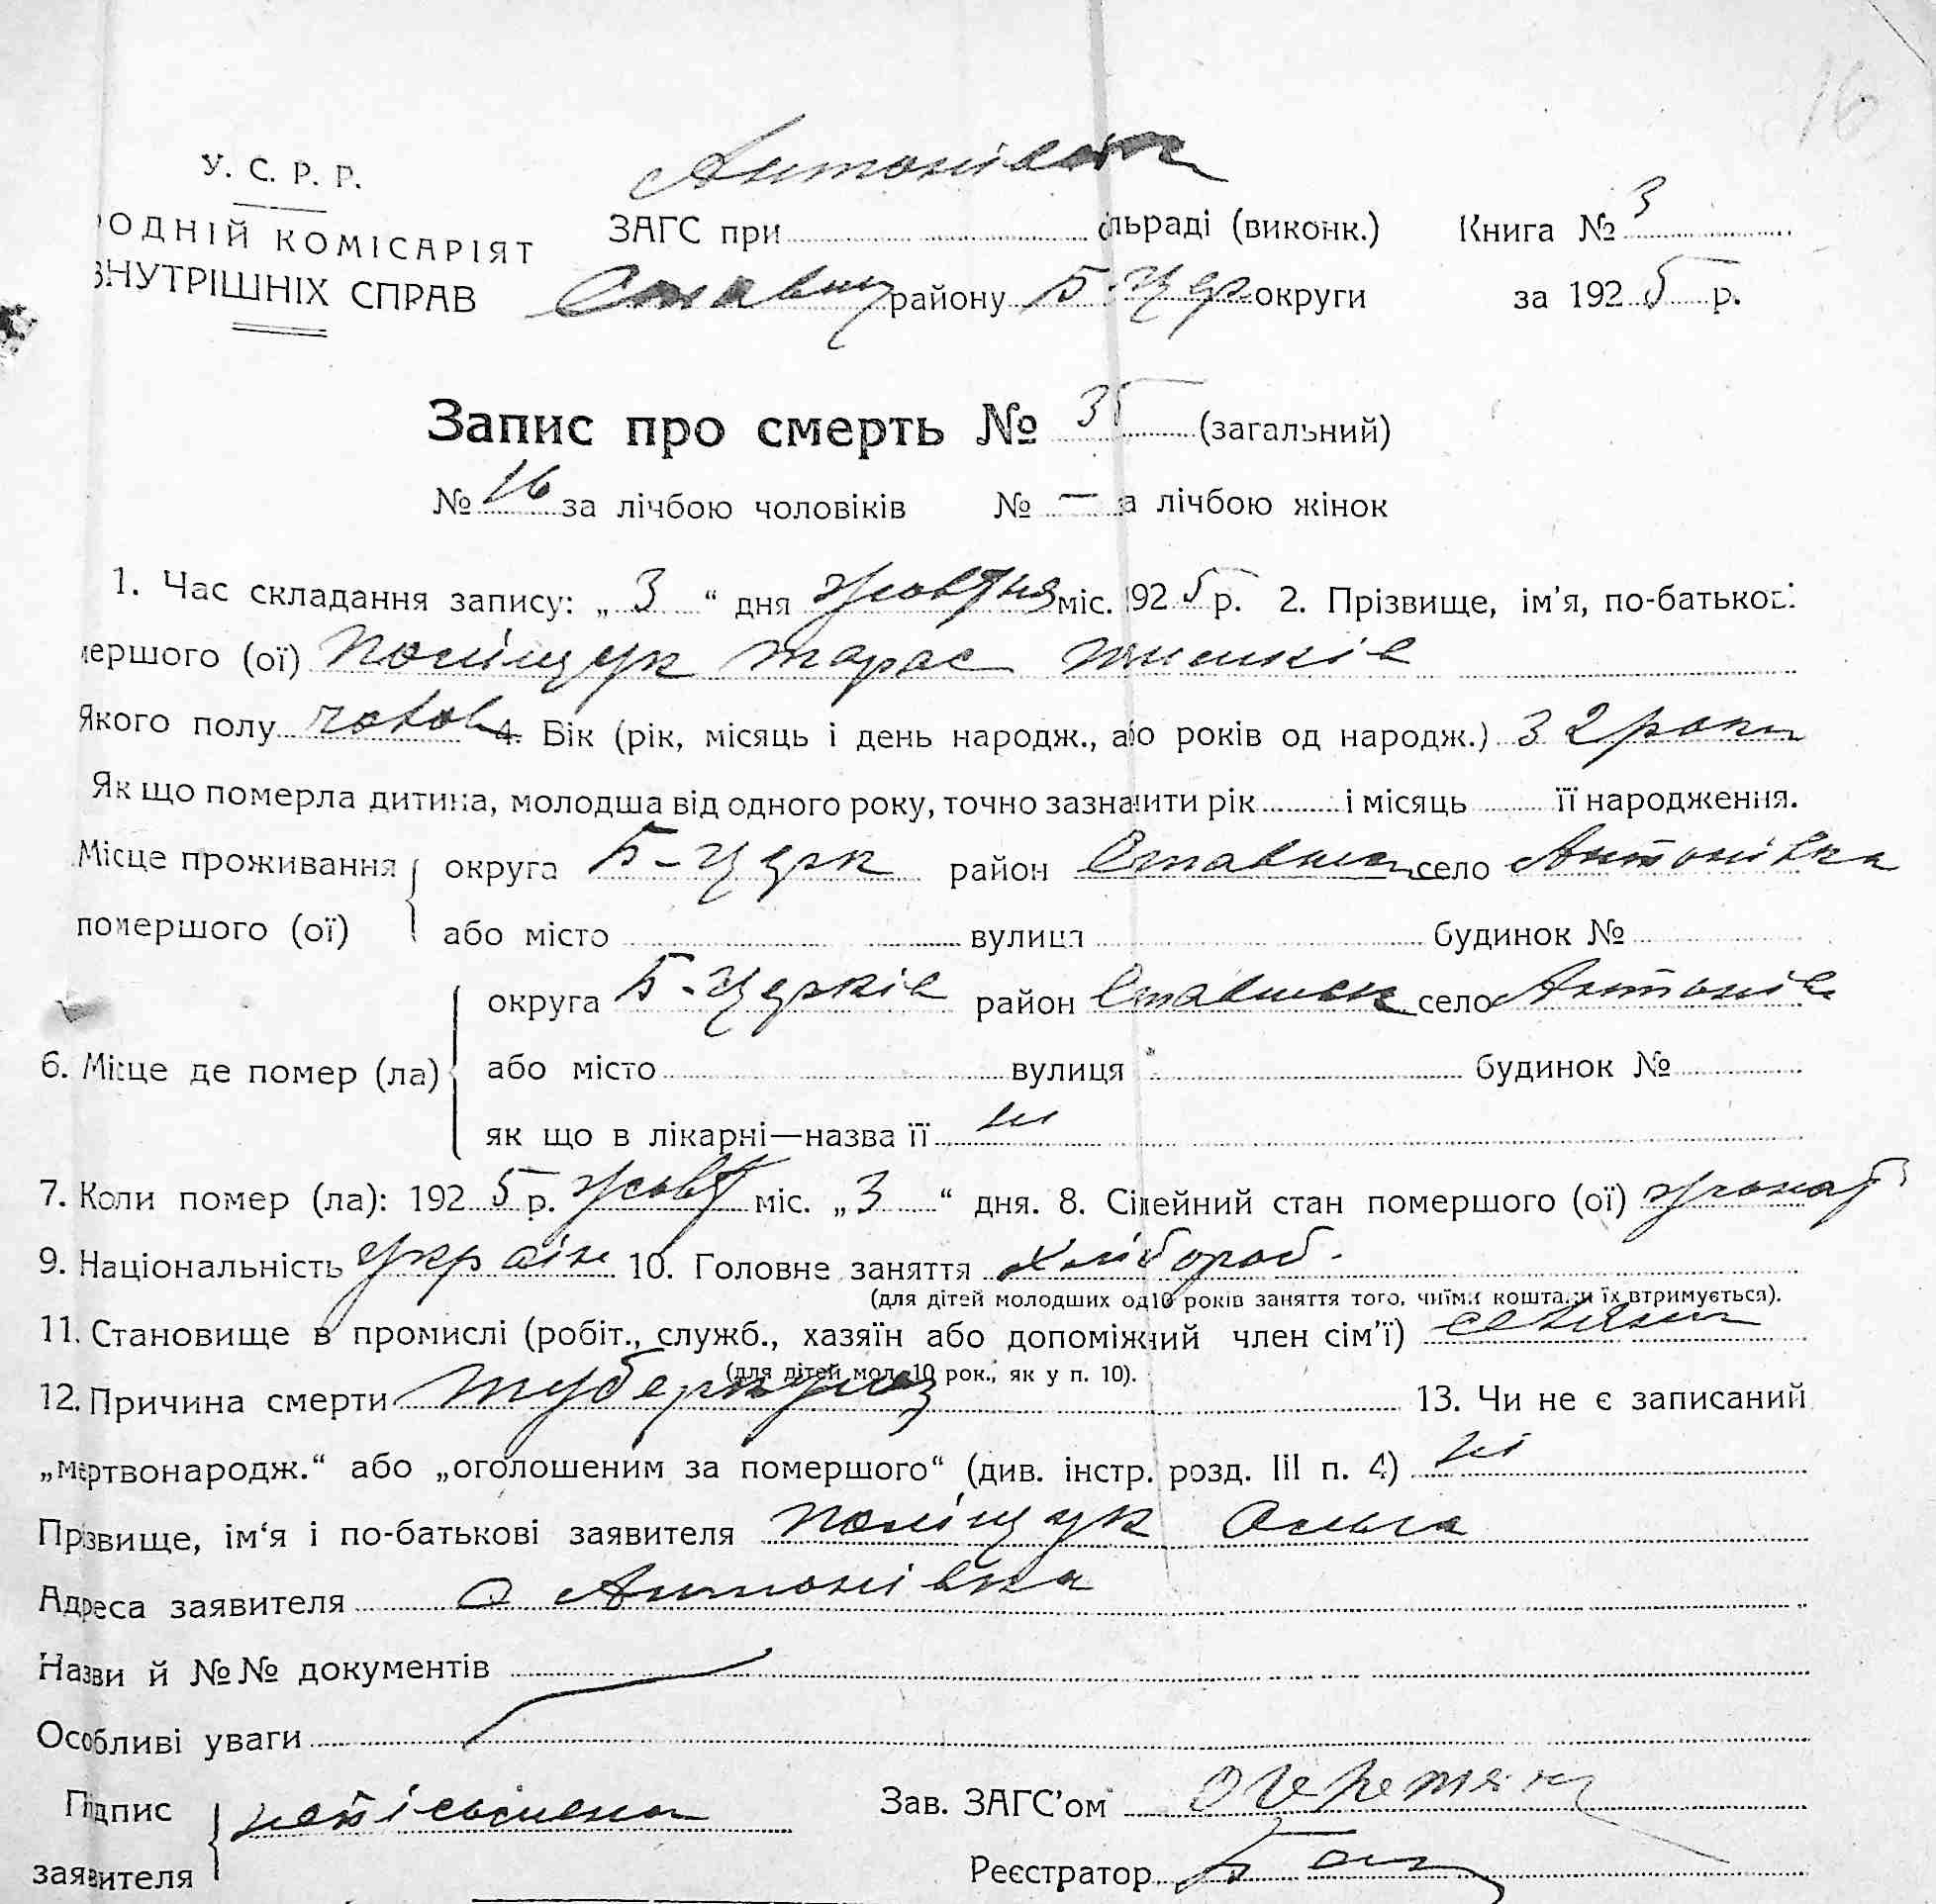 16
У. С. Р. Р.
РОДНІЙ КОМІСАРІЯТ
ВНУТРІШНІХ СПРАВ
Антонівск
ЗАГС при сільраді (виконк.) Книга № 3
Ставищ району Б-Цер округи за 1925 р.
Запис про смерть № 35 (загальний)
№ 16 за лічбою чоловіків № — за лічбою жінок
1. Час складання запису: „3“ дня жовтня міс. 1925 р. 2. Прізвище, ім’я, по-батькові
мершого (ої) Поліщук Тарас
Якого полу чолов 4. Вік (рік, місяць і день народж., або років од народж.) 32 роки
Як що померла дитина, молодша від одного року, точно зазначити рік і місяць її народження.
Місце проживання округа Б-Церк район Ставищ село Антонівка
помершого (ої) або місто вулиця будинок №
округа Б-Церків район Ставищ село Антонів
6. Місце де помер (ла) або місто вулиця будинок №
як що в лікарні—назва її ні
7. Коли помер (ла): 1925 р. жовт міс. „3“ дня. 8. Сімейний стан помершого (ої) жонат
9. Національність україн 10. Головне заняття хлібороб.
(для дітей молодших од 10 років заняття того, чиїми коштами їх втримується).
11. Становище в промислі (робіт., служб., хазяїн або допоміжний член сім’ї) селянин
(для дітей мол. 10 рок., як у п. 10).
12. Причина смерти туберкульоз 13. Чи не є записаний
„мертвонародж.“ або „оголошеним за помершого“ (див. інстр. розд. III п. 4) ні
Прізвище, ім‘я і по-батькові заявителя Поліщук Ольга
Адреса заявителя с Антонівка
Назви й №№ документів
Особливі уваги
Підпис неписьмена Зав. ЗАГС’ом Очеретяк
заявителя Реєстратор